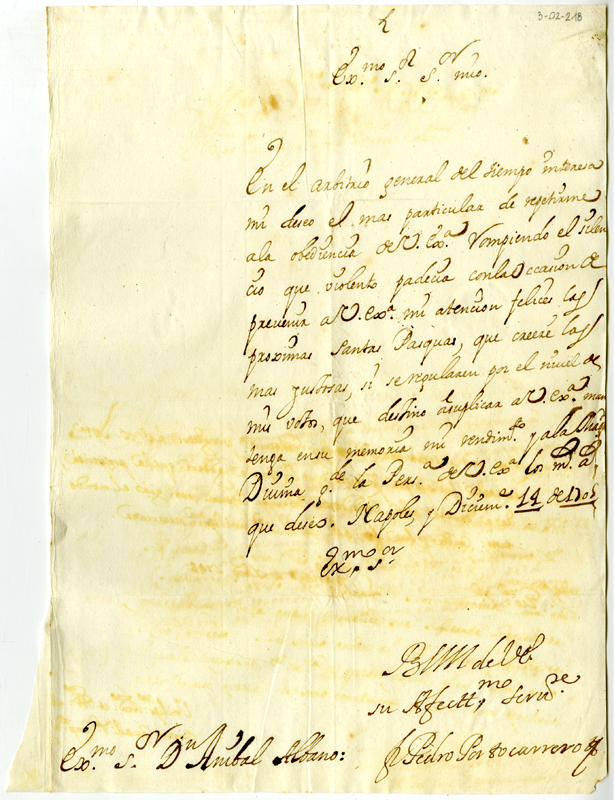 3-02-218
Ex.mo S.r S.or mio.
En el arbitrio general del tiempo interesa
mi deseo el mas particular de repetirme
ala obediencia de V. Ex.a Rompiendo el silen
cio que violento padecia conla Occasion de
prevenir a V. Ex.a mi atencion felices las
proximas Santas Pasquas, que creere las
mas gustosas, si se regularen por el nivel de
mis votos, que destino a suplicar a V. Ex.a man
tenga ensu memoria mi rendim.to y ala Mag.d
Divina g.de la Pers.a de V. Ex.a los m.s a.s
que deseo. Napoles, y Diciem.e 14, de
Ex.mo S.or
BLM de VE
su Afectt.mo Serv.or
Ex.mo S.or D.n Anibal Albano:
Pedro Portocarrero